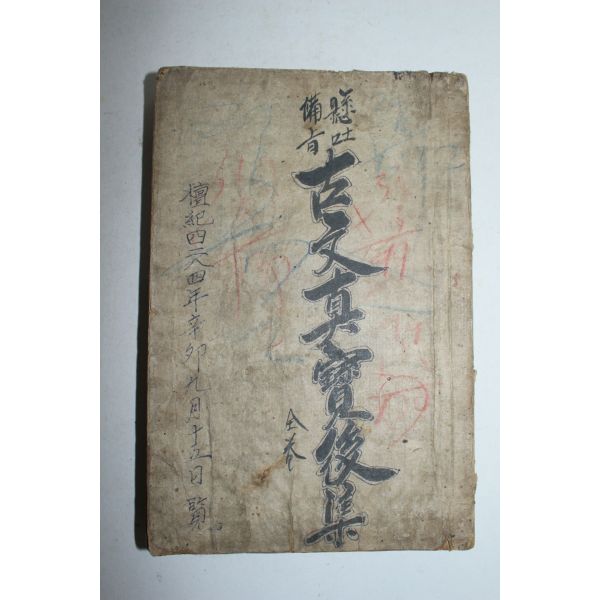 懸吐
備旨
古文真寶後集
全卷
檀紀四二八四年辛卯九月十五日覽